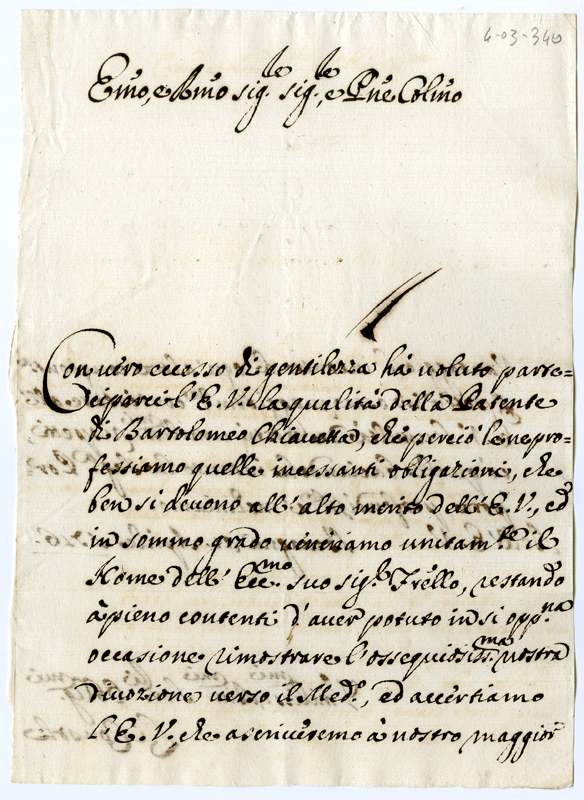 4-03-340
Emo, e Rmo sig.re sig.re, e Pne Colmo
Con vero eccesso di gentilezza há voluto parte=
ciparci l'E. V. la qualitá della Patente
di Bartolomeo Chiavetta, che perció le ne pro=
fessiamo quelle incessanti obligazioni, che
ben si devono all'alto merito dell'E. V., ed
in sommo grado veneriamo unitam.te il
Nome dell'Ecc.mo suo sig.r Frello, restando
á pieno contenti d'aver potuto in si opp.na
occasione rimostrare l'ossequiosiss.ma nostra
divozione verso il Med.o, ed accertiamo
l'E. V., che ascriveremo á nostro maggior